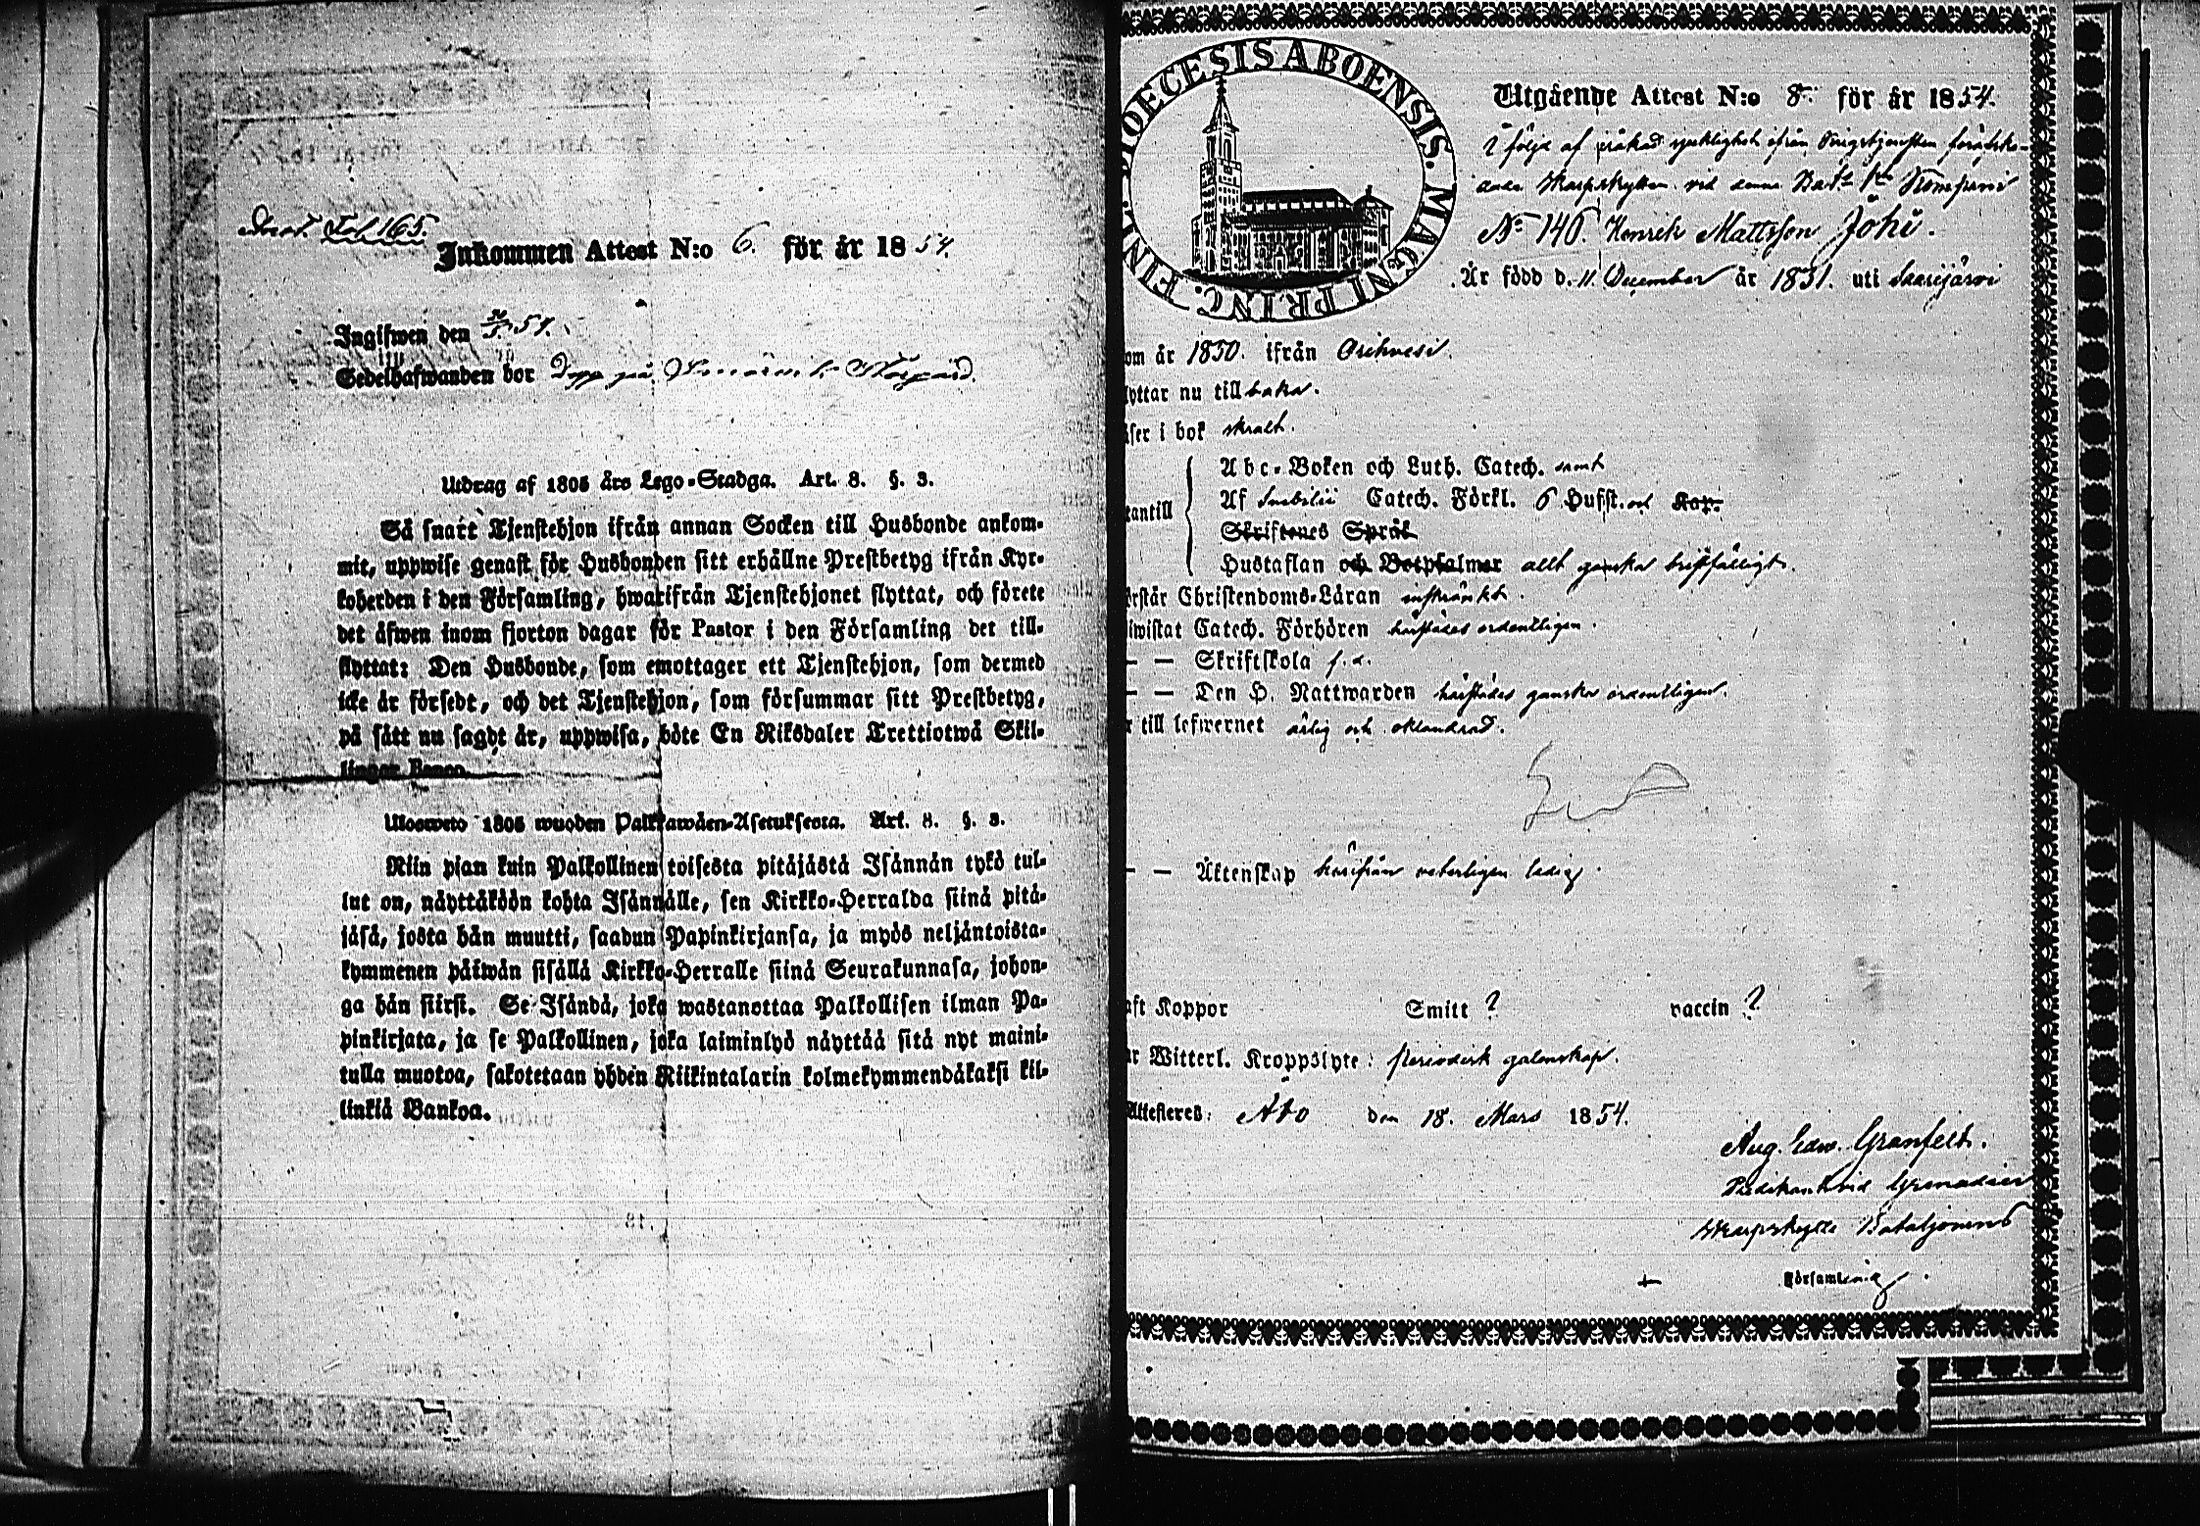 Inot. Fol 165.
Inkommen Attest N:o 6. för år 1854.
Ingifwen den 54.
Sedelhafwanden bor på
Utdrag af 1805 års Lego-Stadga. Art. 8. §. 3.
Så snart Tjenstehjon ifrån annan Socken till Husbonde ankom-
mit, uppwise genast för Husbonden sitt erhållne Prestbetyg ifrån Kyr-
koherden i den Församling, hwarifrån Tjenstehjonet flyttat, och förete
det äfwen inom fjorton dagar för Pastor i den Församling det till-
flyttat: Den Husbonde, som emottager ett Tjenstehjon, som dermed
icke är försedt, och det Tjenstehjon, som försummar sitt Prestbetyg,
på sätt nu sagdt är, uppwisa, böte En Riksdaler Trettiotwå Skil-
lingar Banco.
Ulosweto 1805 wuoden Palkkawäen-Asetuksesta. Art. 8. §. 3.
Niin pian kuin Palkollinen toisesta pitäjästä Isännän tykö tul-
lut on, näyttäköön kohta Isännälle, sen Kirkko-Herralda siinä pitä-
jäsä, josta hän muutti, saadun Papinkirjansa, ja myös neljäntoista-
kymmenen päiwän sisällä Kirkko-Herralle siinä Seurakunnasa, johon-
ga hän siirsi. Se Isändä, joka wastanottaa Palkollisen ilman Pa-
pinkirjata, ja se Palkollinen, joka laiminlyö näyttää sitä nyt maini-
tulla muotoa, sakotetaan yhden Riikintalarin kolmekymmendäkaksi kil-
linkiä Bankoa.
DIOECESIS ABOENSIS. MAGNI PRINC. FINL.
Utgående Attest N:o 8. för år 1854.
I följd af iråkad sjuklighet ifrån Krigstjensten förafske-
dade Skarpskytten vid denna Bat:s 1:a Kompani
No 146. Henrik Mattsson Johi.
Är född d. 11. December år 1831. uti Saarijärvi
om år 1850. ifrån Orihvesi.
lyttar nu till baka.
äser i bok skralt.
tantill
Abc-Boken och Luth. Catech. samt
Af Svebilii Catech. Förkl. 6 Hufst. och Kap.
Skriftenes Språk
Hustaflan och Botpsalmer allt ganska bristfälligt.
örstår Christendoms-Läran inskränkt.
iwistat Catech. Förhören härstädes ordentligen.
— — Skriftskola f. d.
— — Den H. Nattwarden härstädes ganska ordentligen.
r till lefwernet ärlig och oklandrad.
— — Äktenskap härifrån veterligen ledig.
aft Koppor Smitt ? vaccin ?
ar Witterl. Kroppslyte: Periodisk galenskap.
Attesteres: Åbo den 18. Mars 1854.
Aug. Edw. Granfelt.
Predikant vid Grenadier
Skarpskytte Bataljonens
Församling.